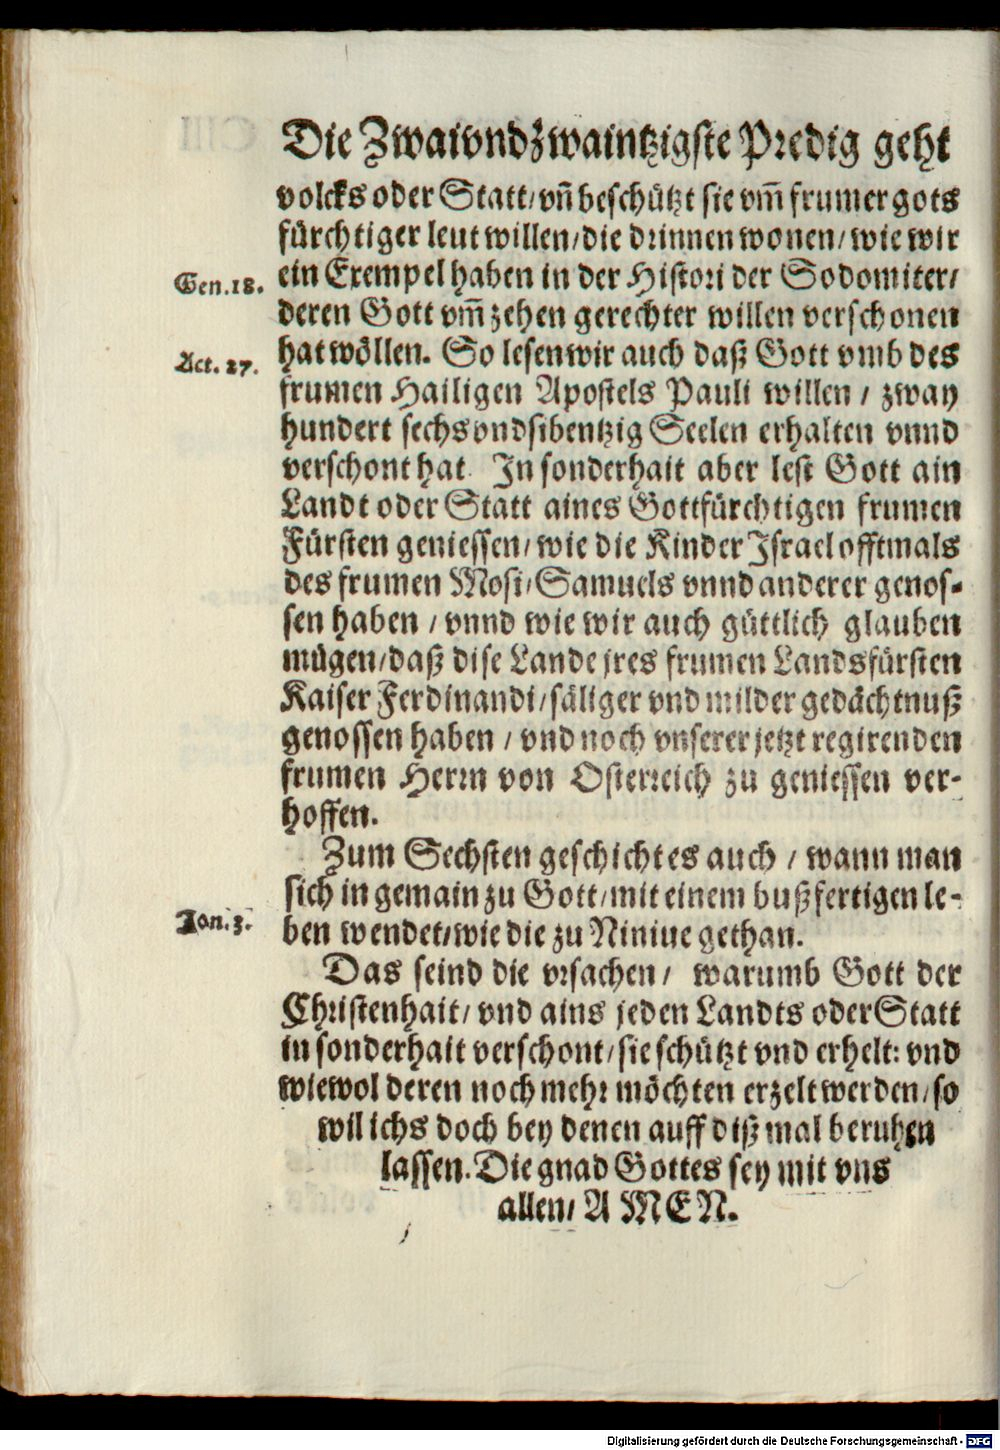 Die Zwaivndzwaintzigste Predig geht
volcks oder Statt/ vñ beschützt sie vm̃ frumer gots
fürchtiger leut willen/ die drinnen wonen/ wie wir
Gen. 18. ein Exempel haben in der Histori der Sodomiter/
deren Gott vm̃ zehen gerechter willen verschonen
Act. 27. hat wöllen. So lesen wir auch daß Gott vmb des
frumen Hailigen Apostels Pauli willen / zway
hundert sechsvndsibentzig Seelen erhalten vnnd
verschont hat In sonderhait aber lest Gott ain
Landt oder Statt aines Gottfürchtigen frumen
Fürsten geniessen/ wie die Kinder Israel offtmals
des frumen Mosi/ Samuels vnnd anderer genos-
sen haben / vnnd wie wir auch güttlich glauben
mügen/ daß dise Lande jres frumen Landsfürsten
Kaiser Ferdinandi/ säliger vnd milder gedächtnuß
genossen haben / vnd noch vnserer jetzt regirenden
frumen Herrn von Osterreich zu geniessen ver-
hoffen.
Zum Sechsten geschicht es auch / wann man
sich in gemain zu Gott/ mit einem bußfertigen le-
Jon. 3. ben wendet/ wie die zu Niniue gethan.
Das seind die vrsachen/ warumb Gott der
Christenhait/ vnd ains jeden Landts oder Statt
in sonderhait verschont/ sie schützt vnd erhelt: vnd
wiewol deren noch mehr möchten erzelt werden/ so
wil ichs doch bey denen auff diß mal beruhen
lassen. Die gnad Gottes sey mit vns
allen/ A M E N.
Digitalisierung gefördert durch die Deutsche Forschungsgemeinschaft - DFG